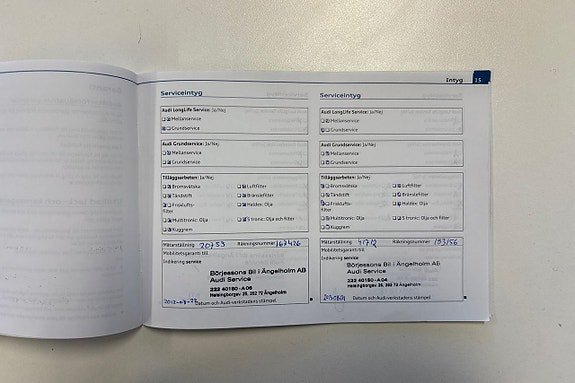 Intyg 15
Serviceintyg
Audi LongLife Service: Ja/Nej
Mellanservice
Grundservice
Audi Grundservice: Ja/Nej
Mellanservice
Grundservice
Tilläggsarbeten: Ja/Nej
Bromsvätska
Luftfilter
Tändstift
Bränslefilter
Friskluftsfilter
Haldex: Olja
Multitronic: Olja
S tronic: Olja och filter
Kuggrem
Mätarställning 20753 Räkningsnummer 167426
Mobilitetsgaranti till
Indikering service
Börjessons Bil i Ängelholm AB
Audi Service
222 40180 -A 06
Helsingborgsv 26, 262 72 Ängelholm
Datum och Audi-verkstadens stämpel
Serviceintyg
Audi LongLife Service: Ja/Nej
Mellanservice
Grundservice
Audi Grundservice: Ja/Nej
Mellanservice
Grundservice
Tilläggsarbeten: Ja/Nej
Bromsvätska
Luftfilter
Tändstift
Bränslefilter
Friskluftsfilter
Haldex: Olja
Multitronic: Olja
S tronic: Olja och filter
Kuggrem
Mätarställning 41712 Räkningsnummer 183156
Mobilitetsgaranti till
Indikering service
Börjessons Bil i Ängelholm AB
Audi Service
222 40180 -A 04
Helsingborgsv 26, 262 72 Ängelholm
Datum och Audi-verkstadens stämpel